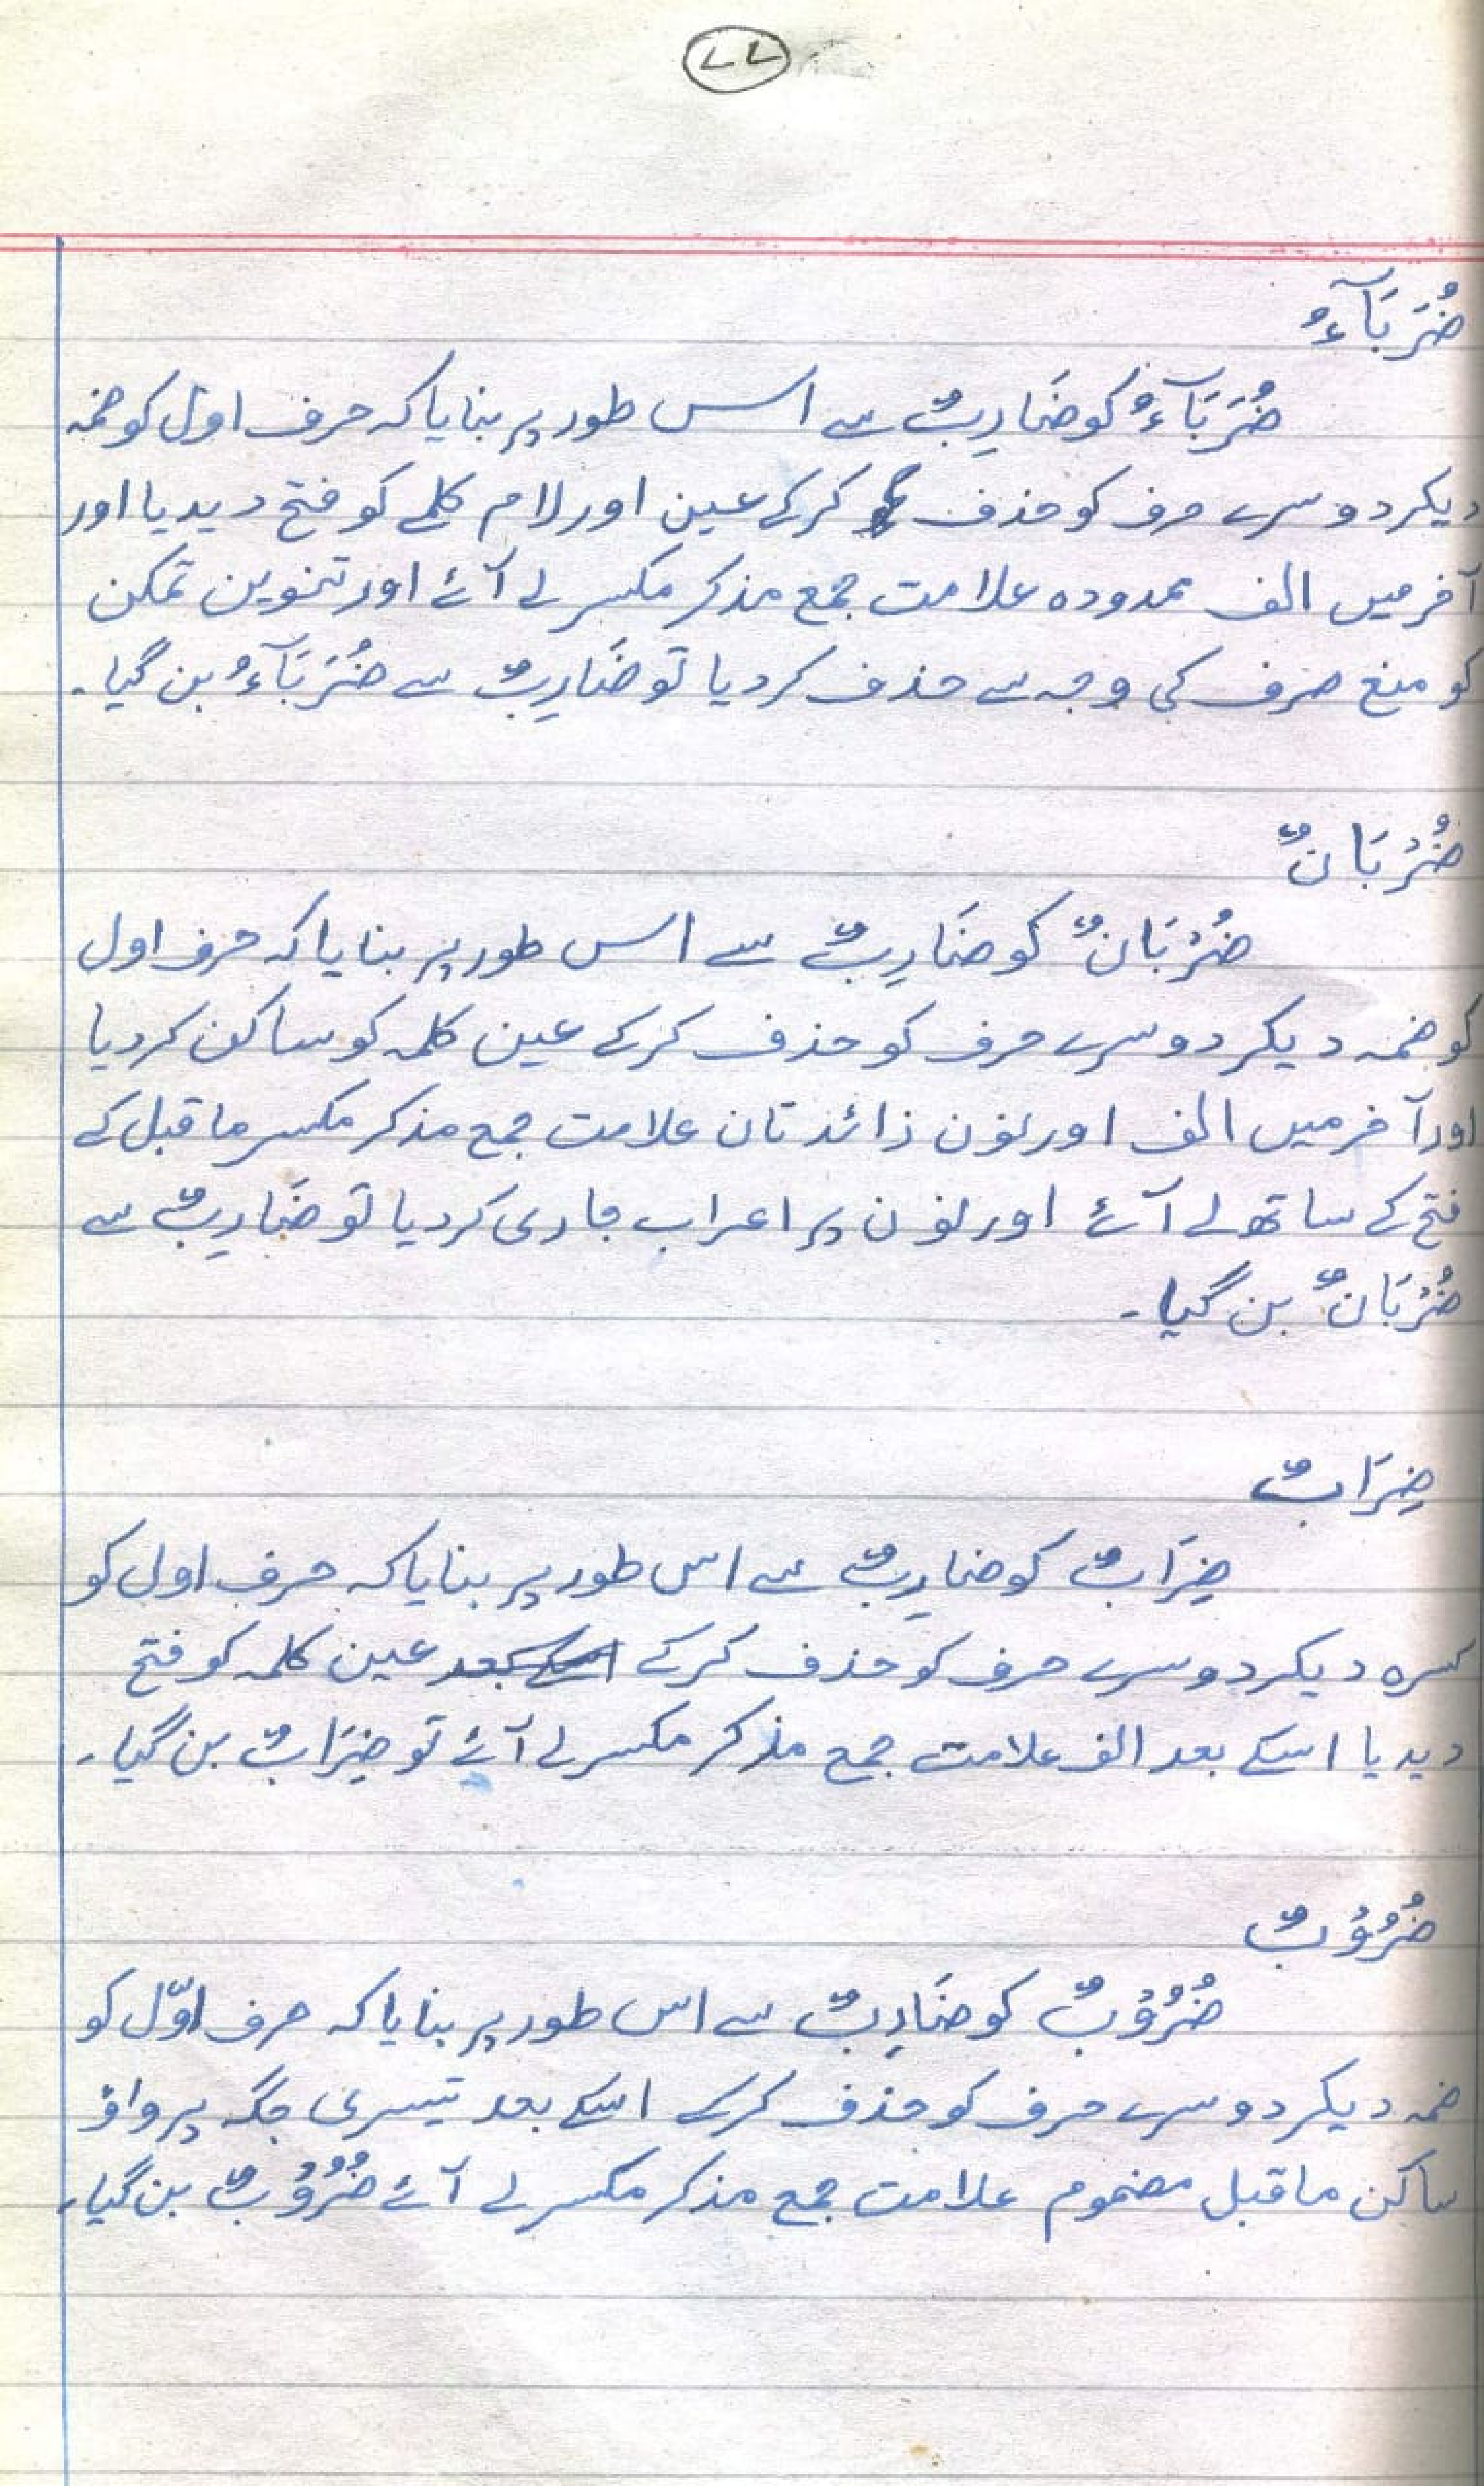 ۷۷
ضُرَبَآءُ
ضُرَبَآءُ کو ضَارِبٌ سے اس طور پر بنایا کہ حرف اول کو ضمہ
دیکر دوسرے حرف کو حذف کرکے عین اور لام کلمے کو فتح دیدیا اور
آخر میں الف ممدودہ علامت جمع مذکر مکسر لے آئے اور تنوین تمکن
کو منع صرف کی وجہ سے حذف کردیا تو ضَارِبٌ سے ضُرَبَآءُ بن گیا۔
ضُرْبَانٌ
ضُرْبَانٌ کو ضَارِبٌ سے اس طور پر بنایا کہ حرف اول
کو ضمہ دیکر دوسرے حرف کو حذف کرکے عین کلمہ کو ساکن کردیا
اور آخر میں الف اور نون زائدتان علامت جمع مذکر مکسر ماقبل کے
فتح کے ساتھ لے آئے اور نون پر اعراب جاری کردیا تو ضَارِبٌ سے
ضُرْبَانٌ بن گیا۔
ضِرَابٌ
ضِرَابٌ کو ضارِبٌ سے اس طور پر بنایا کہ حرف اول کو
کسرہ دیکر دوسرے حرف کو حذف کرکے عین کلمہ کو فتح
دیدیا اسکے بعد الف علامت جمع مذکر مکسر لے آئے تو ضِرَابٌ بن گیا۔
ضُرُوْبٌ
ضُرُوْبٌ کو ضَارِبٌ سے اس طور پر بنایا کہ حرف اوّل کو
ضمہ دیکر دوسرے حرف کو حذف کرکے اسکے بعد تیسری جگہ پر واؤ
ساکن ماقبل مضموم علامت جمع مذکر مکسر لے آئے ضُرُوْبٌ بن گیا۔